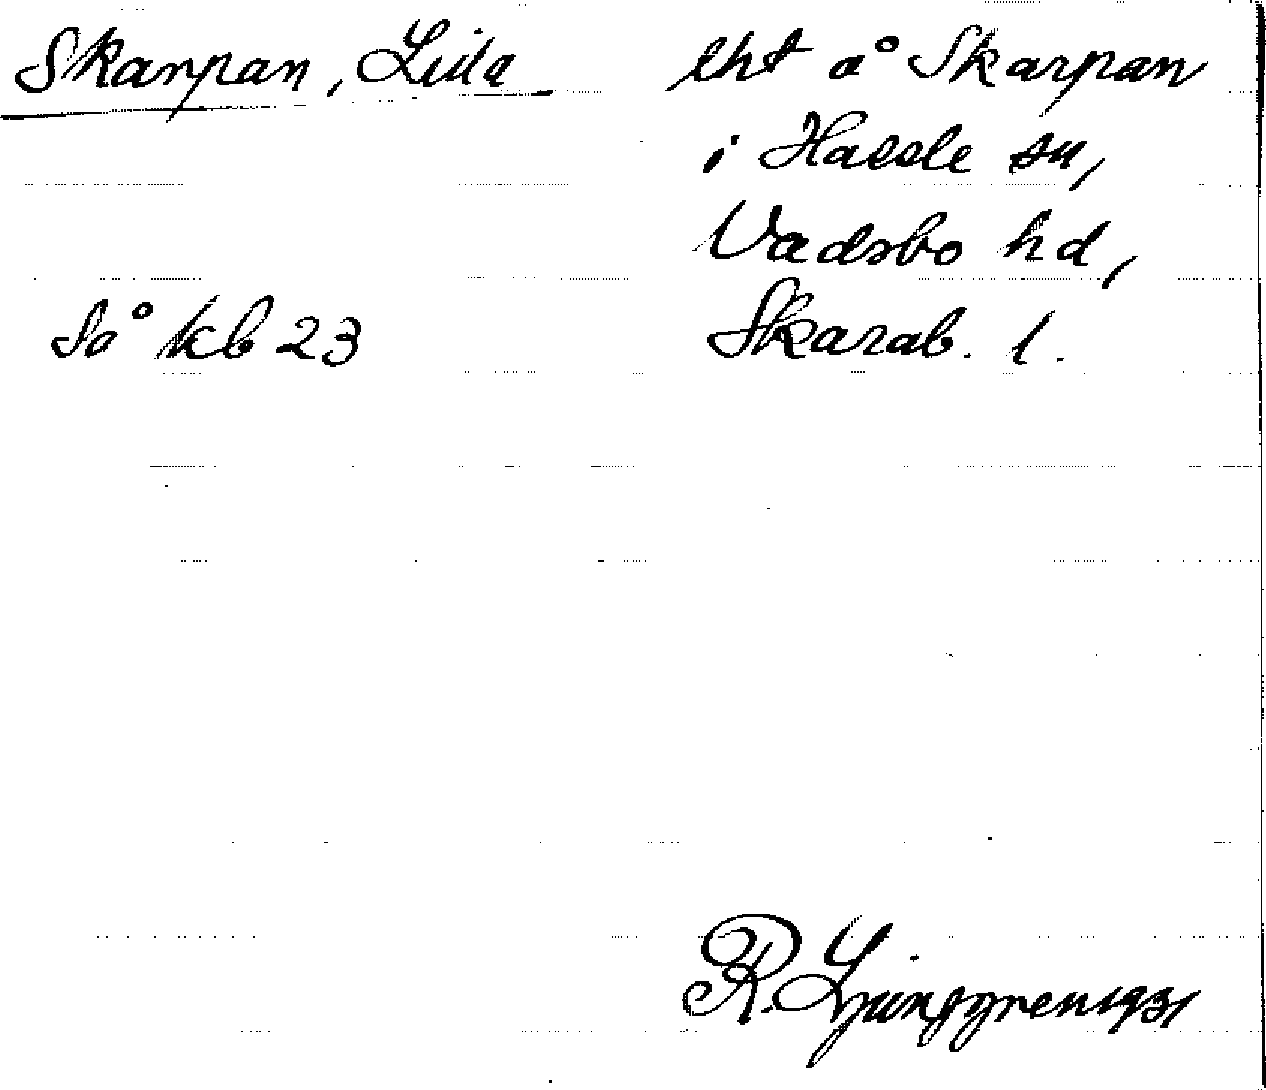 Skarpan, Lilla
lht å Skarpan
i Hassle sn,
Vadsbo hd,
Så kb 23
Skarab. l.
R. Ljunggren 1931